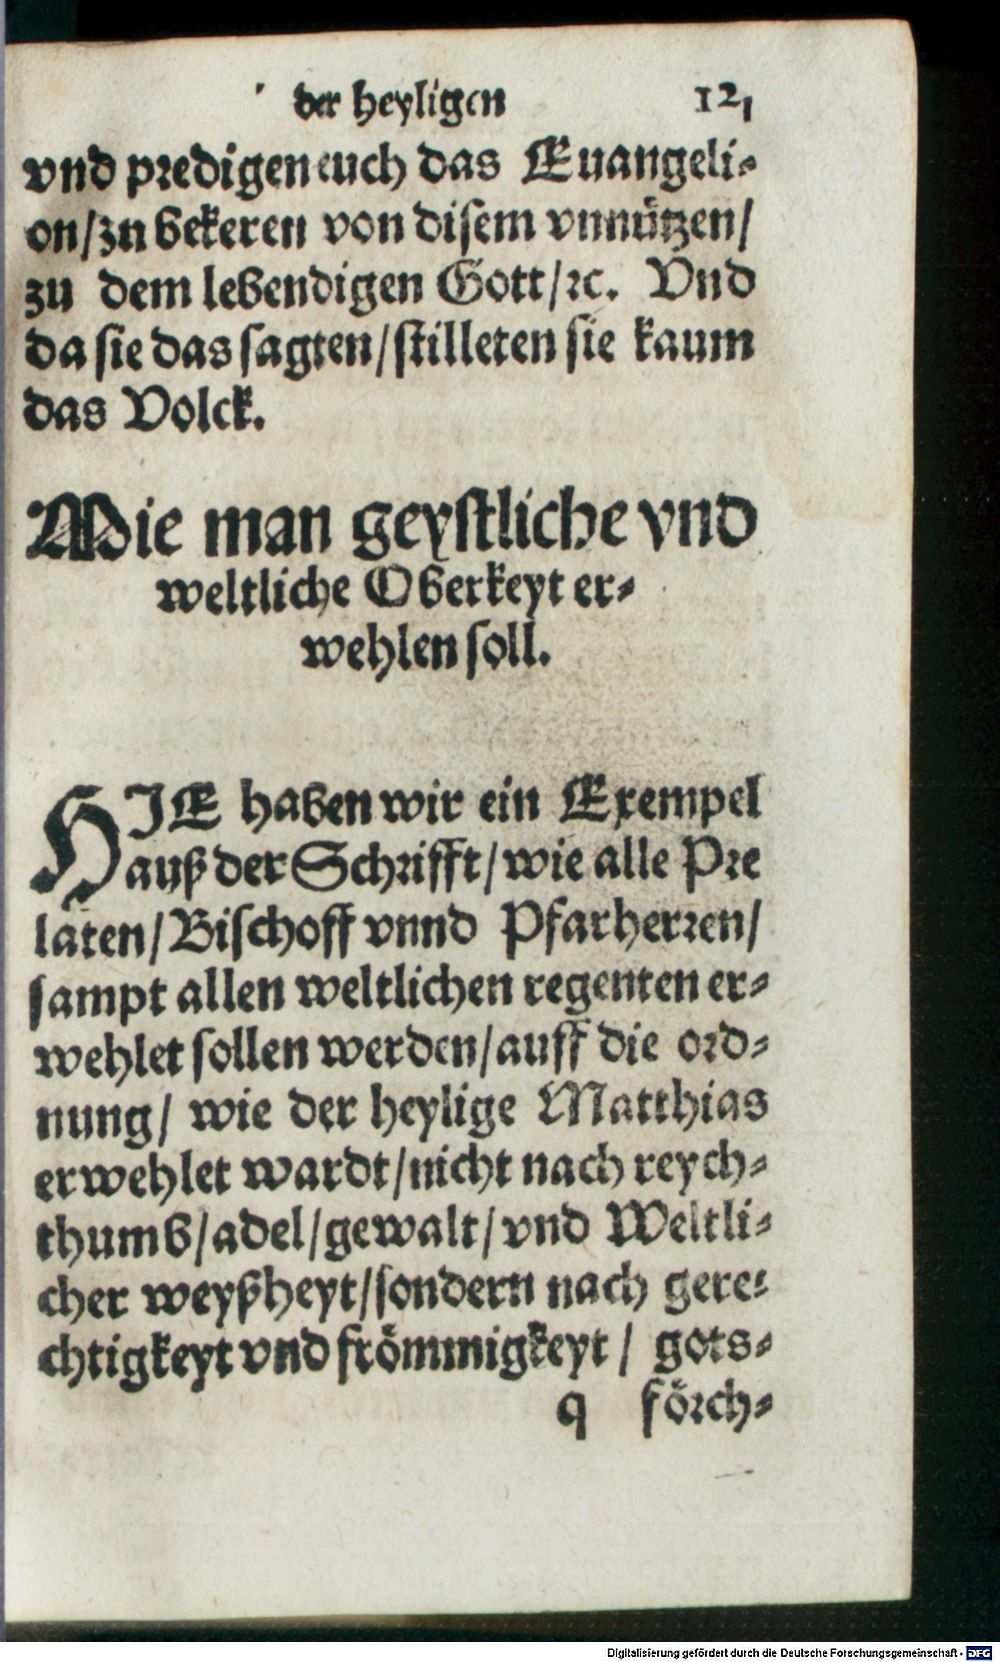 der heyligen 121
vnd predigen euch das Euangeli-
on/zu bekeren von disem vnnützen/
zu dem lebendigen Gott/ꝛc. Vnd
da sie das sagten/stilleten sie kaum
das Volck.
Wie man geystliche vnd
weltliche Oberkeyt er-
wehlen soll.
HIE haben wir ein Exempel
auß der Schrifft/wie alle Pre
laten/Bischoff vnnd Pfarherren/
sampt allen weltlichen regenten er-
wehlet sollen werden/auff die ord-
nung/ wie der heylige Matthias
erwehlet wardt/nicht nach reych-
thumb/adel/gewalt/vnd Weltli-
cher weyßheyt/sondern nach gere-
chtigkeyt vnd frömmigkeyt/ gots-
q förch-
Digitalisierung gefördert durch die Deutsche Forschungsgemeinschaft - DFG